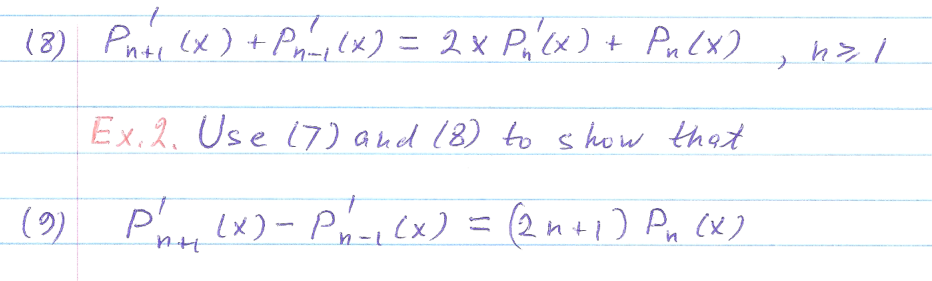 (8) P'ₙ₊₁(x) + P'ₙ₋₁(x) = 2x Pₙ'(x) + Pₙ(x) , n ≥ 1
Ex.2. Use (7) and (8) to show that
(9) P'ₙ₊₁(x) - P'ₙ₋₁(x) = (2n+1) Pₙ(x)